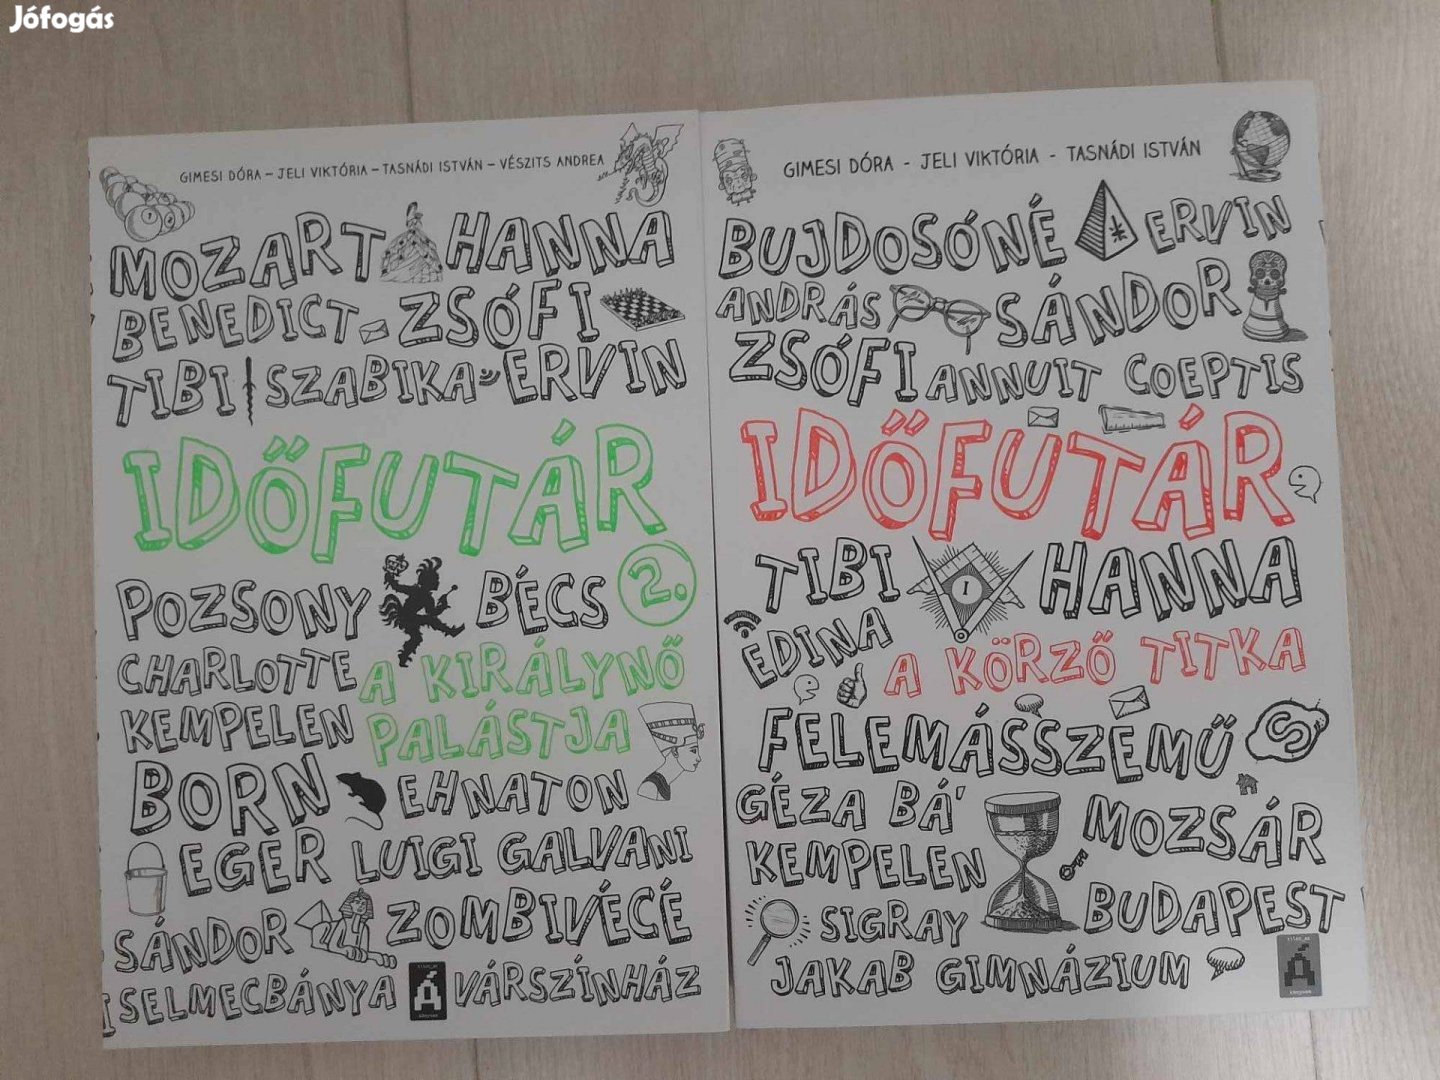 Jófogás
GIMESI DÓRA – JELI VIKTÓRIA – TASNÁDI ISTVÁN – VÉSZITS ANDREA
MOZART HANNA
BENEDICT ZSÓFI
TIBI SZABIKA ERVIN
IDŐFUTÁR
POZSONY BÉCS 2.
CHARLOTTE A KIRÁLYNŐ
KEMPELEN PALÁSTJA
BORN EHNATON
EGER LUIGI GALVANI
SÁNDOR ZOMBIVÉCÉ
SELMECBÁNYA Á VÁRSZÍNHÁZ
könyvek
GIMESI DÓRA - JELI VIKTÓRIA - TASNÁDI ISTVÁN
BUJDOSÓNÉ ERVIN
ANDRÁS SÁNDOR
ZSÓFI ANNUIT COEPTIS
IDŐFUTÁR
TIBI 1 HANNA
EDINA A KÖRZŐ TITKA
FELEMÁSSZEMŰ S
GÉZA BÁ' MOZSÁR
KEMPELEN BUDAPEST
SIGRAY
JAKAB GIMNÁZIUM Á
könyvek